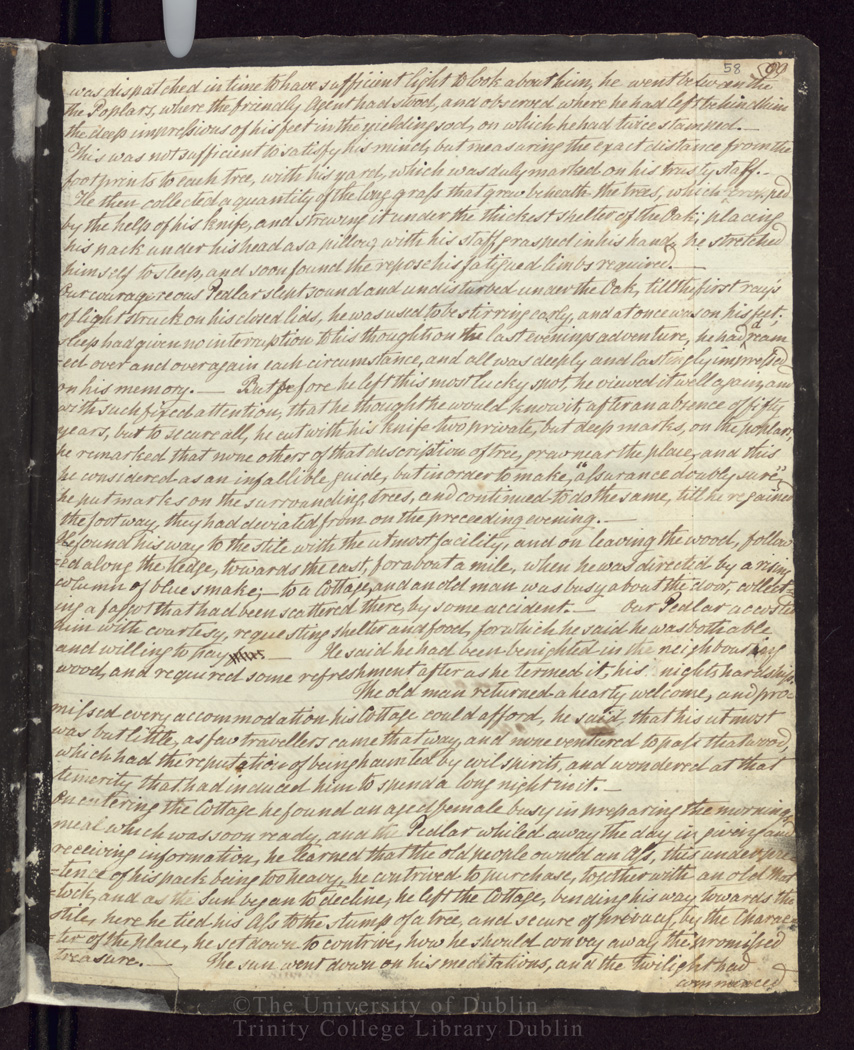 58 99
was dispatched in time to have sufficient light to look about him, he went between the
the Poplars, where the friendly Agent had stood, and observed where he had left behind him
the deep impressions of his feet in the yielding sod, on which he had twice stamped. —
This was not sufficient to satisfy his mind, but measuring the exact distance from the
footprints to each tree, with his yard, which was duly marked on his trusty staff. —
He then collected a quantity of the long grass that grew beneath the trees, which cropped
by the help of his knife, and strewing it under the thickest shelter of the Oak; placing
his pack under his head as a pillow, with his staff grasped in his hand, he stretched
himself to sleep, and soon found the repose his fatigued limbs required. —
Our courageous Pedlar slept sound and undisturbed under the Oak, till the first rays
of light struck on his closed lids, he was used to be stirring early, and at once was on his feet;
sleep had given no interruption to his thoughts on the last evenings adventure, he had ream
-ed over and over again each circumstance, and all was deeply and lastingly impressed
on his memory. — But before he left this most lucky spot he viewed it well again, and
with such fixed attention, that he thought he would know it, after an absence of fifty
years, but to secure all, he cut with his knife two private, but deep marks, on the poplars,
he remarked that none others of that description of tree, grew near the place, and this
he considered as an infallible guide, but in order to make, "assurance doubly sure",
he put marks on the surrounding trees, and continued to do the same, till he regained
the foot way, they had deviated from on the preceeding evening. —
He found his way to the stile with the utmost facility, and on leaving the wood, follow
=ed along the hedge, towards the east, for about a mile, when he was directed by a rising
column of blue smoke; — to a Cottage, and an old man was busy about the door, collect=
ing a faggot that had been scattered there, by some accident. — Our Pedlar accosted
him with courtesy, requesting shelter and food, for which he said he was both able
and willing to pay — He said he had been benighted in the neighbouring
wood, and required some refreshment after as he termed it, his nights hardship.
The old man returned a hearty welcome, and pro-
missed every accommodation his Cottage could afford, he said, that his utmost
was but little, as few travellers came that way, and none ventured to pass that wood,
which had the reputation of being haunted by evil spirits, and wondered at that
temerity that had induced him to spend a long night in it. —
On entering the Cottage he found an aged female busy in preparing the mornings
meal which was soon ready, and the Pedlar whiled away the day in giving and
receiving information, he learned that the old people owned an Ass, this under pre
=tence of his pack being too heavy, he contrived to purchase, together with an old Mat
=tock, and as the Sun began to decline, he left the Cottage, bending his way towards the
stile, here he tied his Ass to the stump of a tree, and secure of privacy by the Charac=
=ter of the place, he set down to contrive, how he should convey away the promissed
treasure. — The sun went down on his meditations, and the twilight had
commenced
©The University of Dublin
Trinity College Library Dublin